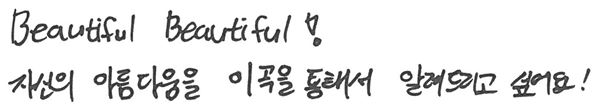 Beautiful Beautiful!
자신의 아름다움을 이곡을 통해서 알려드리고 싶어요!